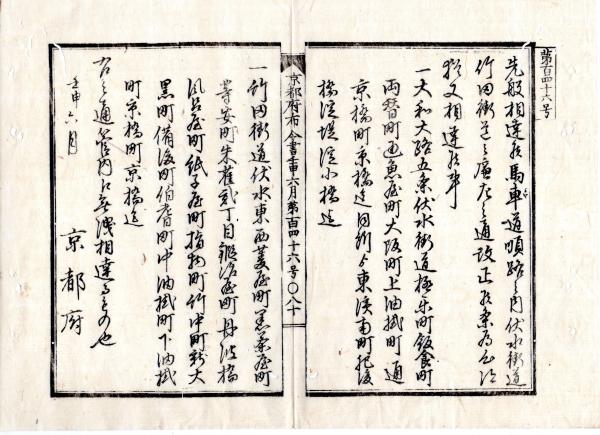 第百四十六号
先般相達候馬車道順路之内伏水街道
竹田街道之廉左之通改正候条為心得
猶又相達候事
一大和大路五条伏水街道極楽町飯食町
両替町通魚屋町大阪町上油掛町通
京橋町京橋迄同所ゟ東浜南町肥後
橋淀堤淀小橋迄
京都府布令書壬申六月第百四十六号〇八十
一竹田街道伏水東西菱屋町黒茶屋町
等安町朱雀弐丁目鍛冶屋町丹波橋
風呂屋町紙子屋町指物町竹中町新大
黒町備後町伯耆町中油掛町下油掛
町京橋町京橋迄
右之通管内江無洩相達るもの也
壬申六月
京都府